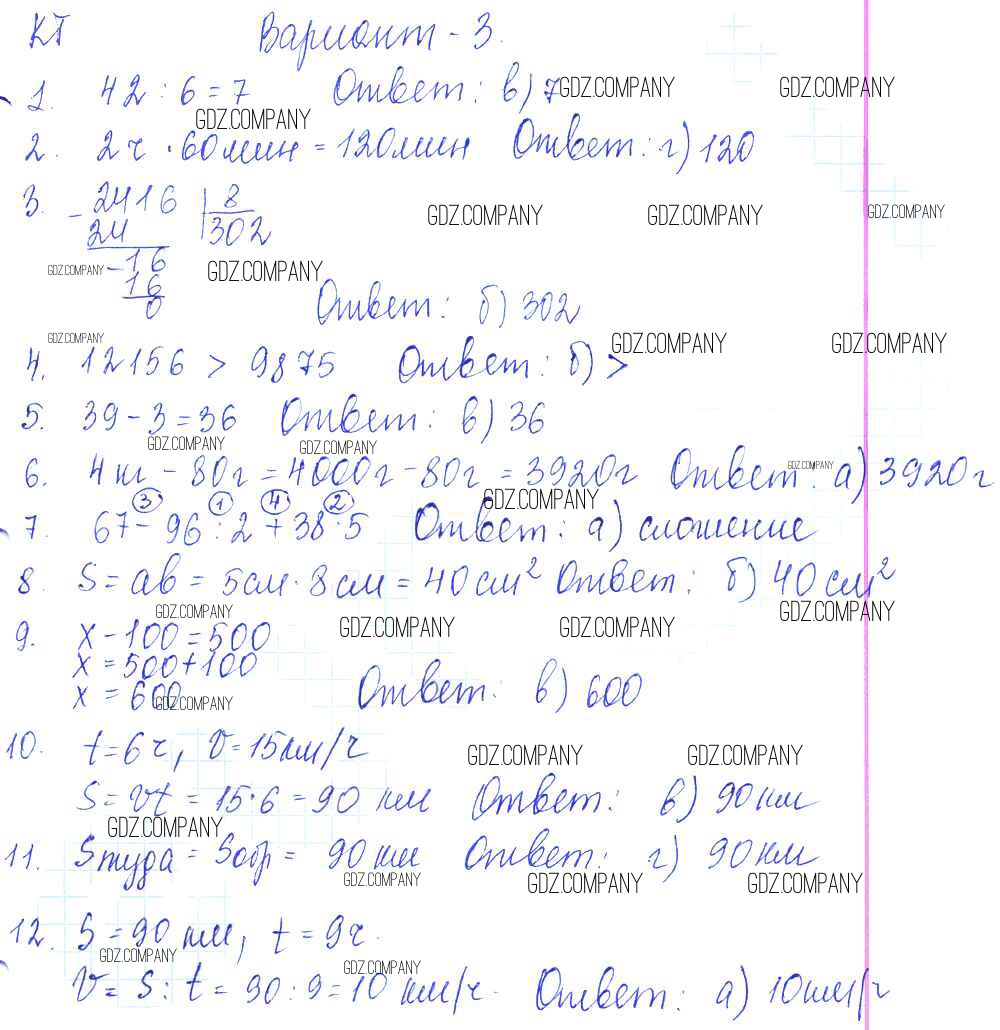 КТ Вариант - 3.
1. 42 : 6 = 7 Ответ: в) 7
GDZ.COMPANY GDZ.COMPANY
GDZ.COMPANY
2. 2 ч · 60 мин = 120 мин Ответ: г) 120
3. - 2416 | 8
24 302
GDZ.COMPANY GDZ.COMPANY GDZ.COMPANY
- 16
GDZ.COMPANY GDZ.COMPANY
16
0
Ответ: б) 302
GDZ.COMPANY GDZ.COMPANY GDZ.COMPANY
4. 12156 > 9875 Ответ: б) >
5. 39 - 3 = 36 Ответ: в) 36
GDZ.COMPANY GDZ.COMPANY
6. 4 кг - 80 г = 4000 г - 80 г = 3920 г Ответ: а) 3920 г
GDZ.COMPANY
GDZ.COMPANY
3 1 4 2
7. 67 - 96 : 2 + 38 · 5 Ответ: а) сложение
8. S = ab = 5 см · 8 см = 40 см² Ответ: б) 40 см²
GDZ.COMPANY GDZ.COMPANY
9. x - 100 = 500
GDZ.COMPANY GDZ.COMPANY
x = 500 + 100
x = 600 Ответ: в) 600
GDZ.COMPANY
10. t = 6 ч, v = 15 км/ч
GDZ.COMPANY GDZ.COMPANY
S = vt = 15 · 6 = 90 км Ответ: в) 90 км
GDZ.COMPANY
11. Sтуда = Sобр = 90 км Ответ: г) 90 км
GDZ.COMPANY GDZ.COMPANY GDZ.COMPANY
12. S = 90 км, t = 9 ч.
GDZ.COMPANY
GDZ.COMPANY
v = S : t = 90 : 9 = 10 км/ч. Ответ: а) 10 км/ч